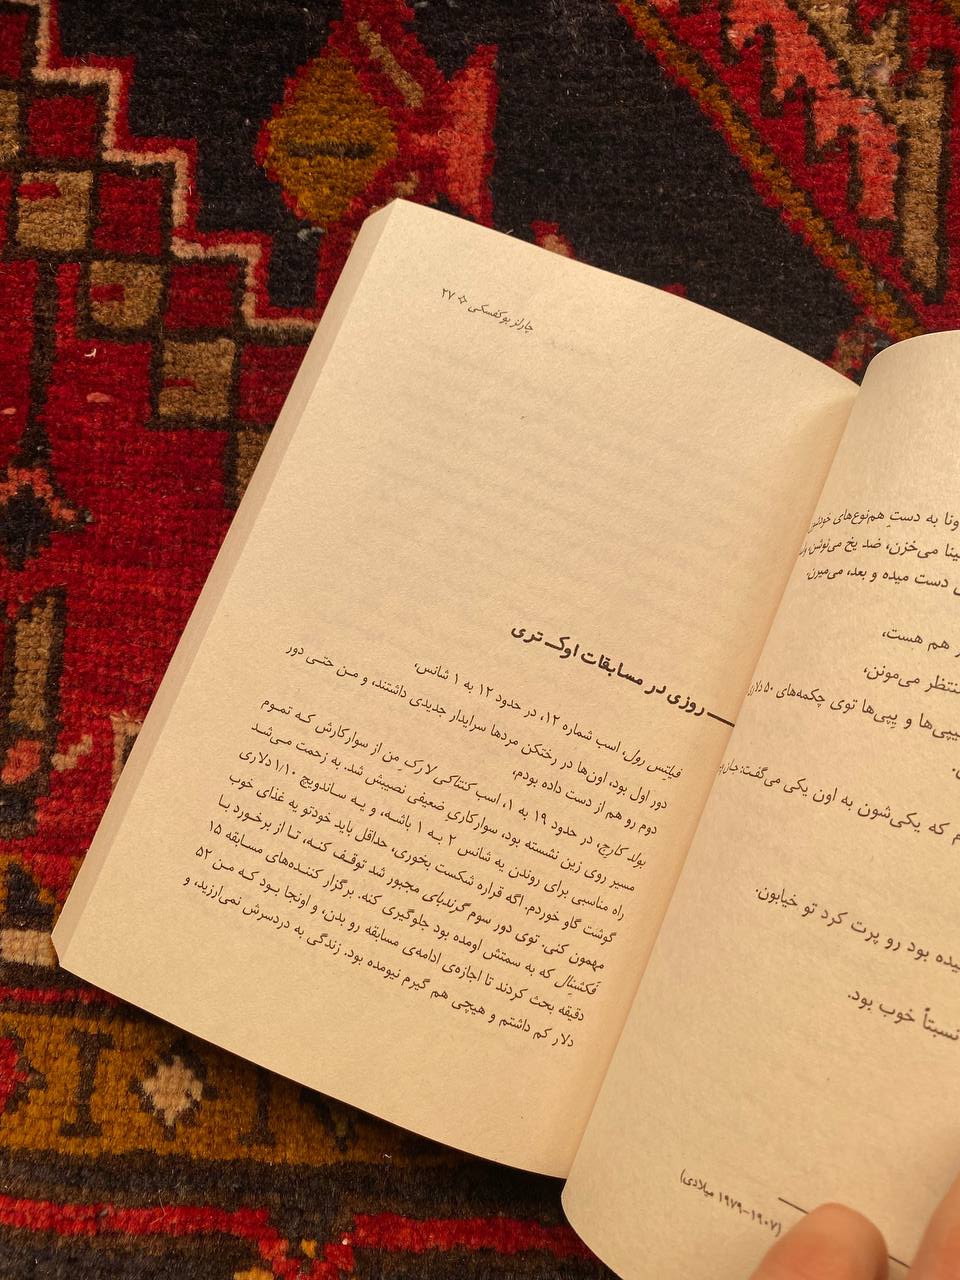 ونا به دستِ هم‌نوع‌های
می‌خزن، ضد یخ می‌نوشن،
دست میده و بعد، می‌میرن.
هم هست،
منتظر می‌مونن،
و یِپی‌ها توی چکمه‌های ۵۰ دلاری
که یکی‌شون به اون یکی می‌گفت:
بود رو پرت کرد تو خیابون.
نسبتاً خوب بود.
(۱۹۰۷-۱۹۷۹ میلادی)
چارلز بوکفسکی ۲۷
روزی در مسابقات اوک تری
فیلیِتس رول، اسب شماره ۱۲، در حدود ۱۲ به ۱ شانس،
دور اول بود، اون‌ها در رختکن مردها سرایدار جدیدی داشتند، و من حتی دور
دوم رو هم از دست داده بودم،
بولد کارج، در حدود ۱۹ به ۱، اسب کنتاکی لارک مِن از سوارکارش که تموم
مسیر روی زین نشسته بود، سوارکاری ضعیفی نصیبش شد. به زحمت می‌شد
راه مناسبی برای روندن یه شانس ۲ به ۱ باشه، و یه ساندویچ ۱/۱۰ دلاری
گوشت گاو خوردم. اگه قراره شکست بخوری، حداقل باید خودتو یه غذای خوب
مهمون کنی. توی دور سوم گرندبای مجبور شد توقف کنه، تا از برخورد با
فَکشنِال که به سمتش اومده بود جلوگیری کنه. برگزار کننده‌های مسابقه ۱۵
دقیقه بحث کردند تا اجازه‌ی ادامه‌ی مسابقه رو بدن، و اونجا بود که من ۵۲
دلار کم داشتم و هیچی هم گیرم نیومده بود. زندگی به دردسرش نمی‌ارزید، و